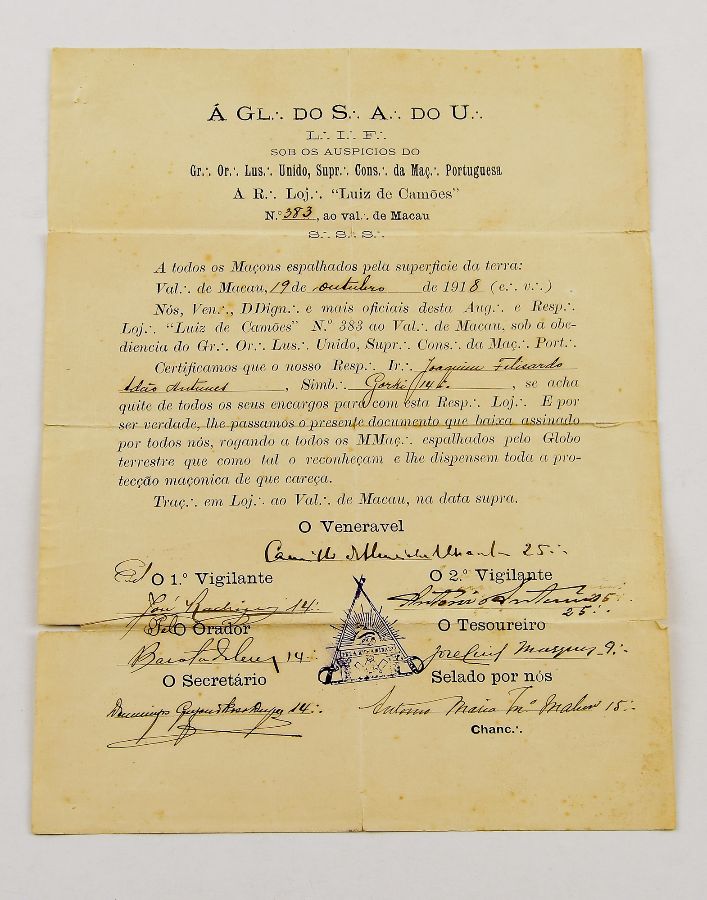 Á GL∴ DO S∴ A∴ DO U∴
L∴ I∴ F∴
SOB OS AUSPICIOS DO
Gr∴ Or∴ Lus∴ Unido, Supr∴ Cons∴ da Maç∴ Portuguesa
A R∴ Loj∴ "Luiz de Camões"
N.º 383, ao val∴ de Macau
S∴ S∴ S∴
A todos os Maçons espalhados pela superficie da terra:
Val∴ de Macau, 19 de outubro de 1918 (e∴ v∴)
Nós, Ven∴, DDign∴ e mais oficiais desta Aug∴ e Resp∴
Loj∴ "Luiz de Camões" N.º 383 ao Val∴ de Macau, sob á obe-
diencia do Gr∴ Or∴ Lus∴ Unido, Supr∴ Cons∴ da Maç∴ Port∴
Certificamos que o nosso Resp∴ Ir∴ Joaquim
Adão Antunes, Simb∴ Gorki 14∴, se acha
quite de todos os seus encargos para com esta Resp∴ Loj∴ E por
ser verdade, lhe passamos o presente documento que baixa assinado
por todos nós, rogando a todos os MMaç∴ espalhados pelo Globo
terrestre que como tal o reconheçam e lhe dispensem toda a pro-
tecção maçonica de que careça.
Traç∴ em Loj∴ ao Val∴ de Macau, na data supra.
O Veneravel
Camillo d'Almeida Pessanha 25∴
O 1.º Vigilante
O 2.º Vigilante
José Rodrigues 14∴
António 25∴
25∴
Pelo Orador
O Tesoureiro
14∴
José Marques 9∴
O Secretário
Selado por nós
Domingos 14∴
Antonio Maria 15∴
Chanc∴